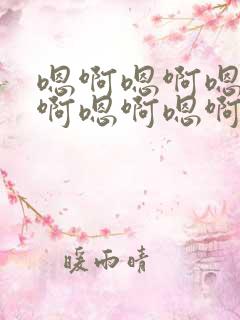 嗯啊嗯啊嗯
啊嗯啊嗯啊
暖雨晴